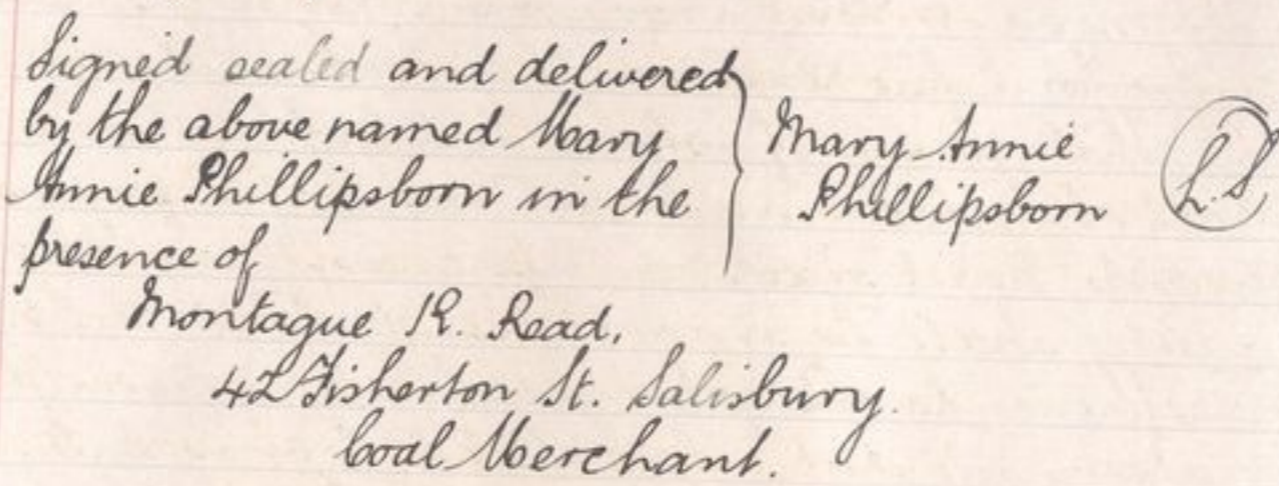 Signed sealed and delivered
by the above named Mary
Annie Phillipsborn in the
presence of
Mary Annie
Phillipsborn
L.S
Montague R. Read,
42 Fisherton St. Salisbury.
Coal Merchant.